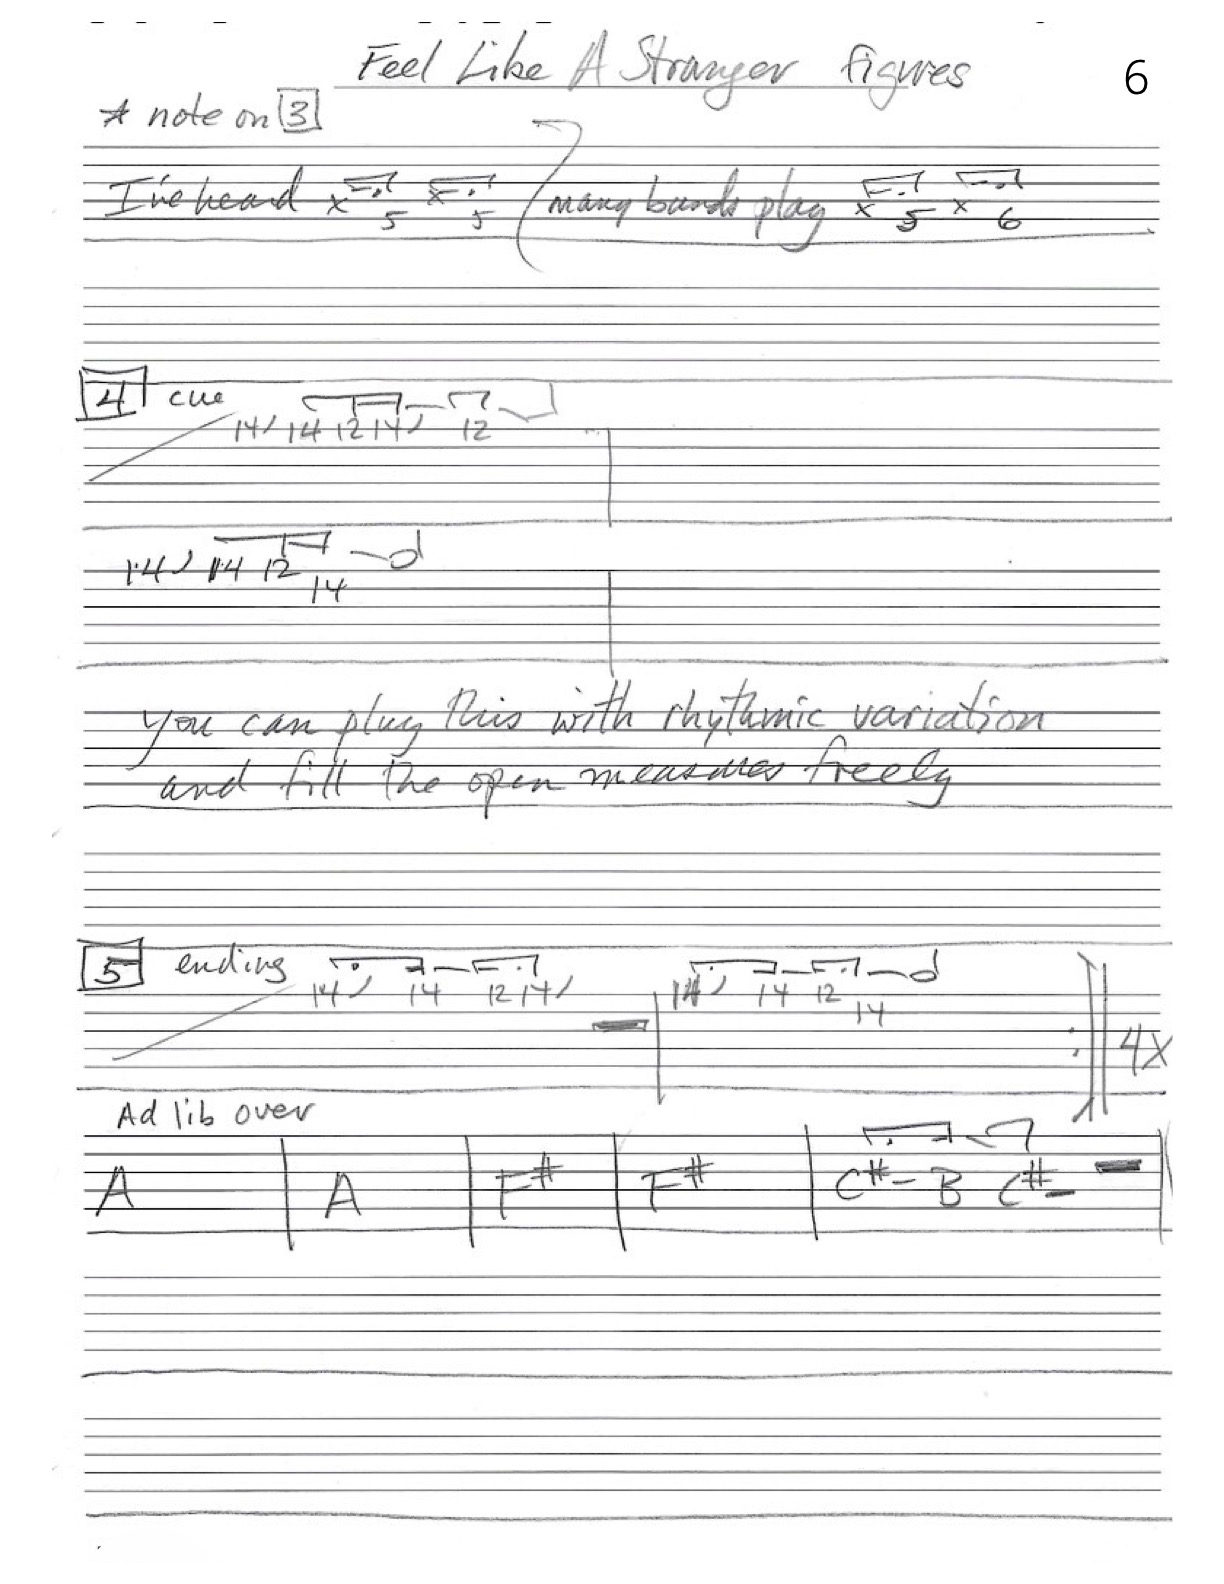 Feel Like A Stranger figures 6
* note on 3
I've heard x 5 x 5 many bands play x 5 x 6
4 cue
14 14 12 14 12
14 14 12
14
you can play this with rhythmic variation
and fill the open measures freely
5 ending
14 14 12 14 14 14 12
14
4X
Ad lib over
A A F# F# C#- B C#-